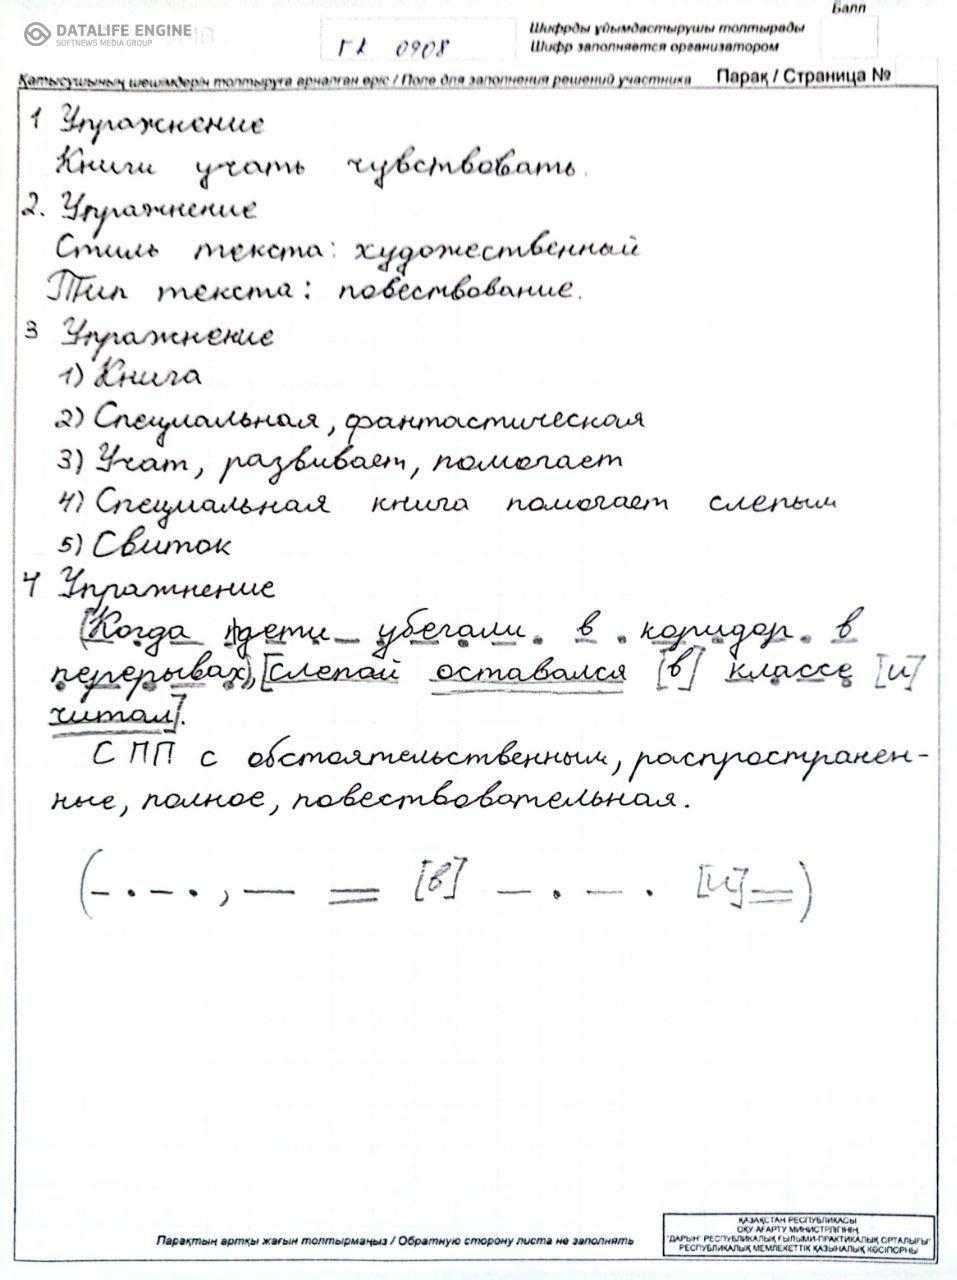 Балл
DATALIFE ENGINE
SOFTNEWS MEDIA GROUP
ГК 0908
Шифрды ұйымдастырушы толтырады
Шифр заполняется организатором
Қатысушының шешімдерін толтыруға арналған өріс / Поле для заполнения решений участника Парақ / Страница №
1 Упражнение
Книги учать чувствовать.
2. Упражнение
Стиль текста: художественный
Тип текста: повествование.
3 Упражнение
1) Книга
2) Специальная, фантастическая
3) Учат, развивает, помогает
4) Специальная книга помогает слепым
5) Свиток
4 Упражнение
(Когда дети убегали в коридор в
перерывах), [слепай оставался [в] классе [и]
читал].
СПП с обстоятельственным, распространен-
ные, полное, повествовательная.
( , [в] [и] )
Парақтың артқы жағын толтырмаңыз / Обратную сторону листа не заполнять
ҚАЗАҚСТАН РЕСПУБЛИКАСЫ
ОҚУ АҒАРТУ МИНИСТРЛІГІНІҢ
"ДАРЫН" РЕСПУБЛИКАЛЫҚ ҒЫЛЫМИ-ПРАКТИКАЛЫҚ ОРТАЛЫҒЫ"
РЕСПУБЛИКАЛЫҚ МЕМЛЕКЕТТІК ҚАЗЫНАЛЫҚ КӘСІПОРНЫ